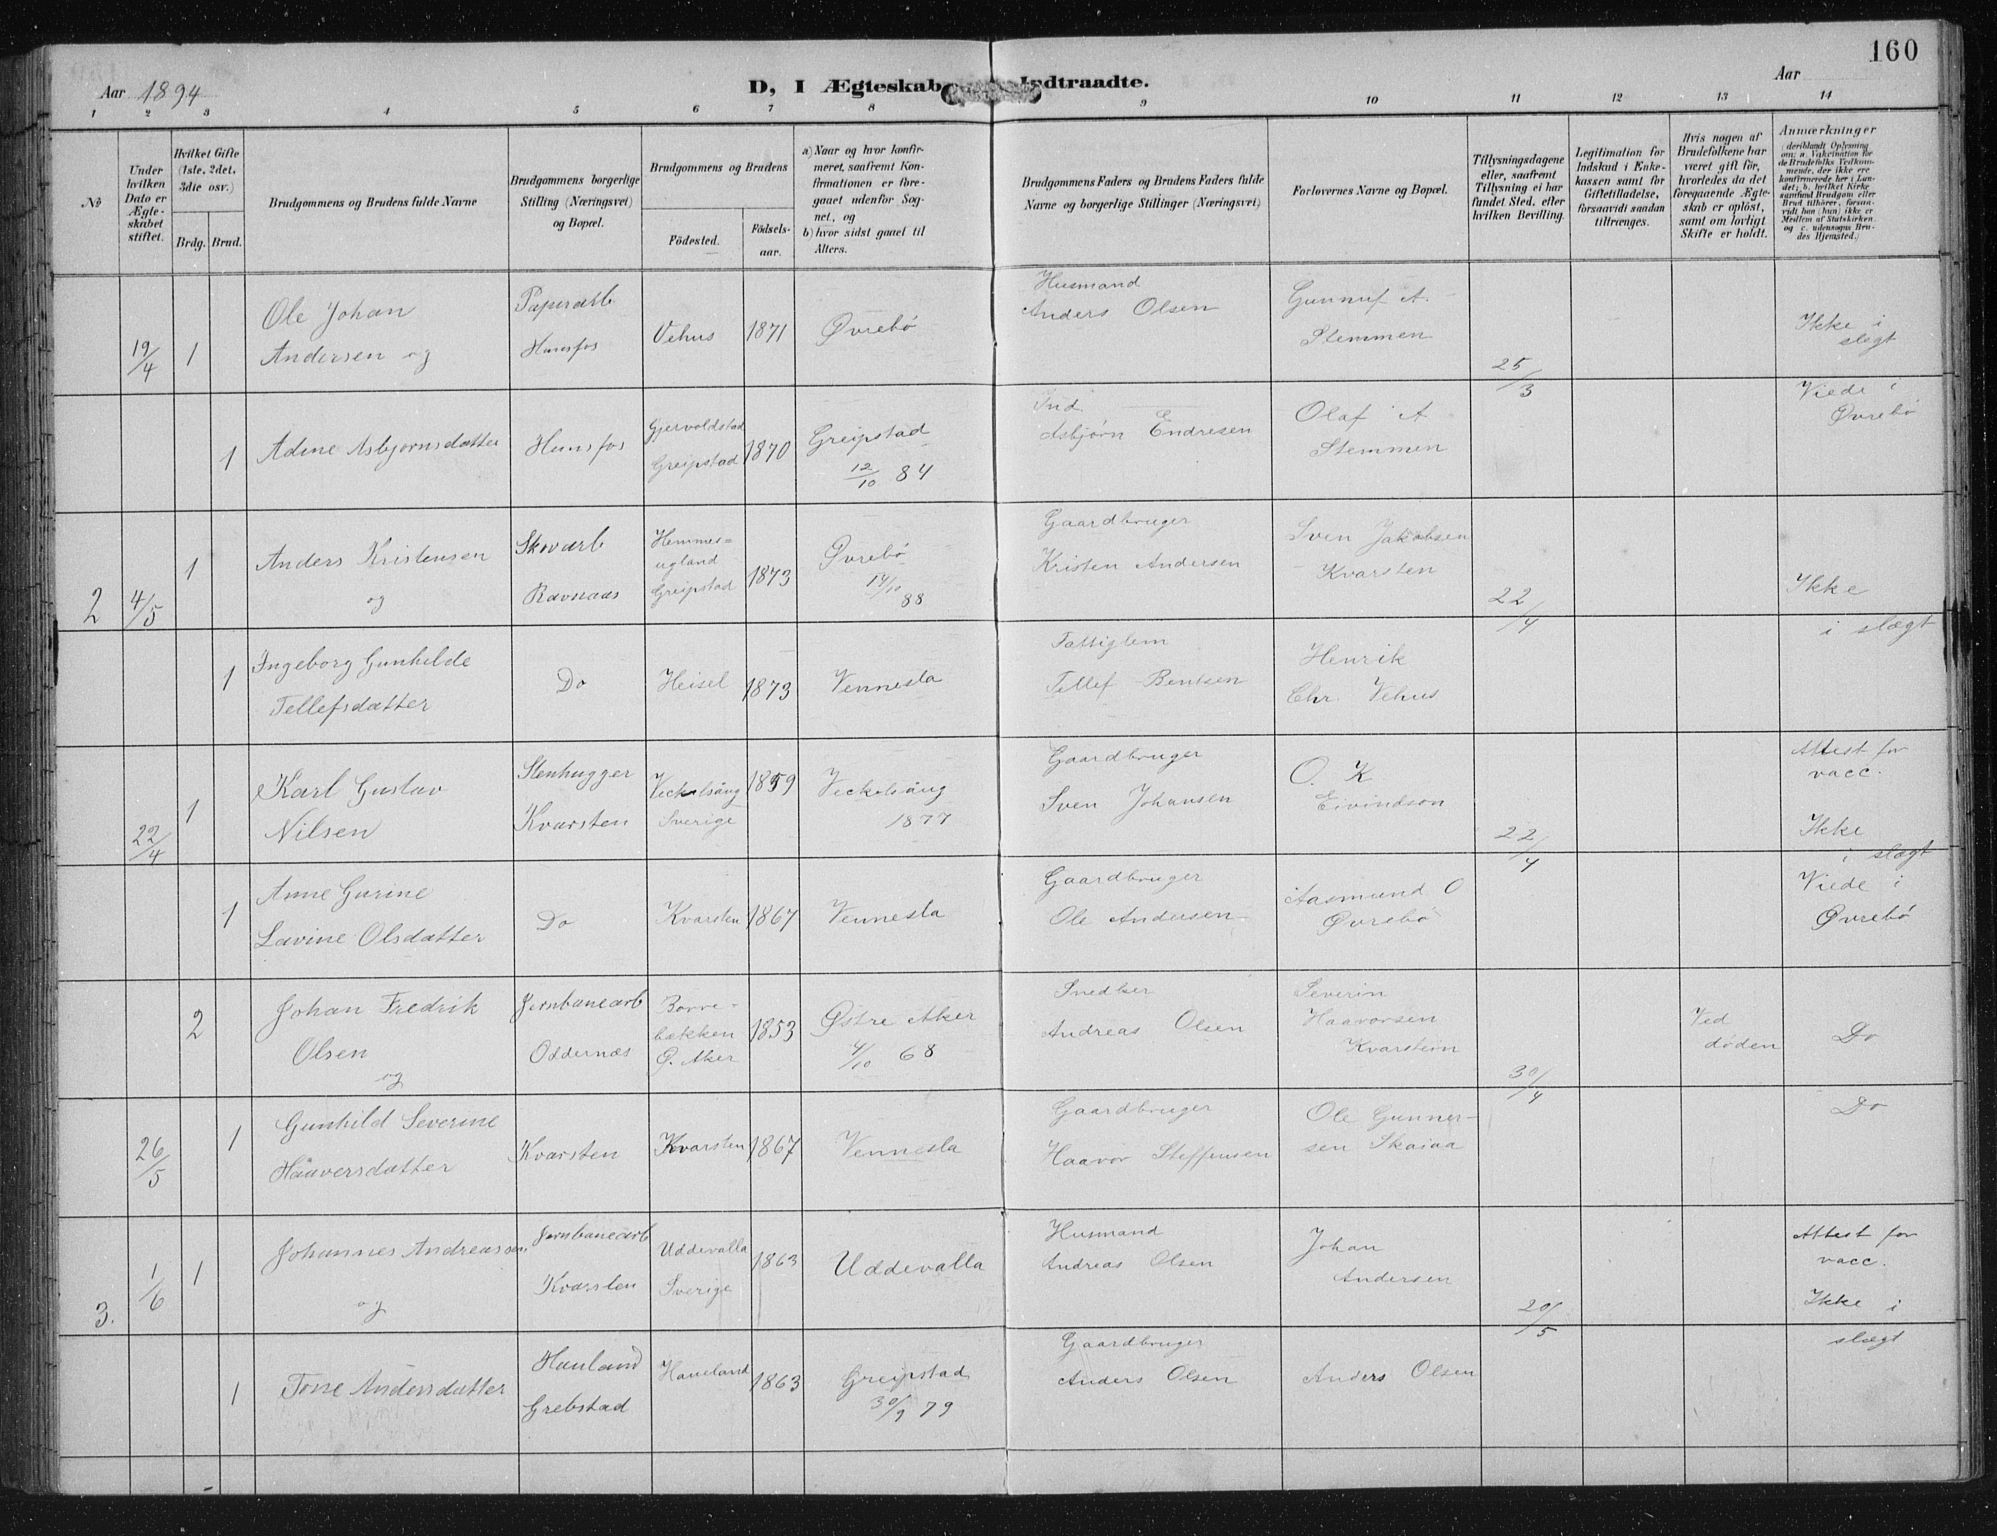 160
Aar 1894
D, I Ægteskab Indtraadte.
Aar
1 2 3 4 5 6 7 8 9 10 11 12 13 14
No
Under hvilken Dato er Ægteskabet stiftet.
Hvilket Gifte (1ste, 2det, 3die osv.)
Brdg. Brud.
Brudgommens og Brudens fulde Navne
Brudgommens borgerlige Stilling (Næringsvei) og Bopæl.
Brudgommens og Brudens
Födested.
Födsels-aar.
a) Naar og hvor konfirmeret, saafremt Konfirmationen er foregaaet udenfor Sognet, og
b) hvor sidst gaaet til Alters.
Brudgommens Faders og Brudens Faders fulde Navne og borgerlige Stillinger (Næringsvei)
Forlovernes Navne og Bopæl.
Tillysningsdagene eller, saafremt Tillysning ei har fundet Sted, efter hvilken Bevilling.
Legitimation for Indskud i Enkekassen samt for Giftetilladelse, forsaavidt saadan tiltrænges.
Hvis nogen af Brudefolkene har været gift för, hvorledes da det foregaaende Ægteskab er oplöst, samt om lovligt Skifte er holdt.
Anmærkninger
(deriblandt Oplysning om: a. Vakcination for de Brudefolks Vedkommende, der ikke ere konfirmerede her i Landet; b. hvilket Kirkesamfund Brudgom eller Brud tilhörer, forsaavidt han (hun) ikke er Medlem af Statskirken, og c. udensogns Brudes Hjemsted.)
19/4 1 Ole Johan Andersen og
Hunsfos
Vehus 1871 Øvrebö
Husmand
Anders Olsen
Stemmen
25/3
Ikke i slegt
1 Adine Asbjornsdatter
Hunsfos
Gjervoldstad
Greipstad 1870
Greipstad
12/10 84
Ind
Asbjørn Endresen
Olaf A
Stemmen
Viede i
Øvrebö
2 4/5 1 Anders Kristensen
og
Ravnaas
Hemmes=
ugland
Greipstad 1873
Øvrebö
14/10 88
Gaardbruger
Kristen Andersen
Sven Jakobsen
Kvarsten
22/4
Ikke
i slægt
1 Ingeborg Gunhilde
Tellefsdatter
Do Heisel 1873 Vennesla
Fattiglem
Tellef Bentsen
Henrik
Chr. Vehus
22/4 1 Karl Gustav
Nilsen
Stenhugger
Kvarsten
Sverige 1859
1877
Gaardbruger
Sven Johansen
O. K
Eivindson
22/4
Attest for
vacc.
Ikke
i slægt
1 Anne Gurine
Lavine Olsdatter
Do Kvarsten 1867 Vennesla
Gaardbruger
Ole Andersen
Aasmund O
Øvrebö
Viede i
Øvrebö
2 Johan Fredrik
Olsen
og
Jernbanearb
Oddernæs
Borre-
bækken
Ø. Aker 1853
Østre Aker
4/10 68
Snedker
Andreas Olsen
Severin
Haavorsen
Kvarstein
30/4
Ved
döden
Do
26/5 1 Gunhild Severine
Haaversdatter
Kvarsten Kvarsten 1867 Vennesla
Gaardbruger
Haavor Steffensen
Ole Gunner-
sen Skaiaa
Do
3. 1/6 1 Johannes Andreassen
og
Jernbanearb
Kvarsten
Uddevalla
Sverige 1863
Uddevalla
Husmand
Andreas Olsen
Johan
Andersen
20/5
Attest for
vacc.
Ikke i
slægt
1 Tone Andersdatter
Hauland
Grebstad
Haueland 1863
Greipstad
30/9 79
Gaardbruger
Anders Olsen
Anders Olsen